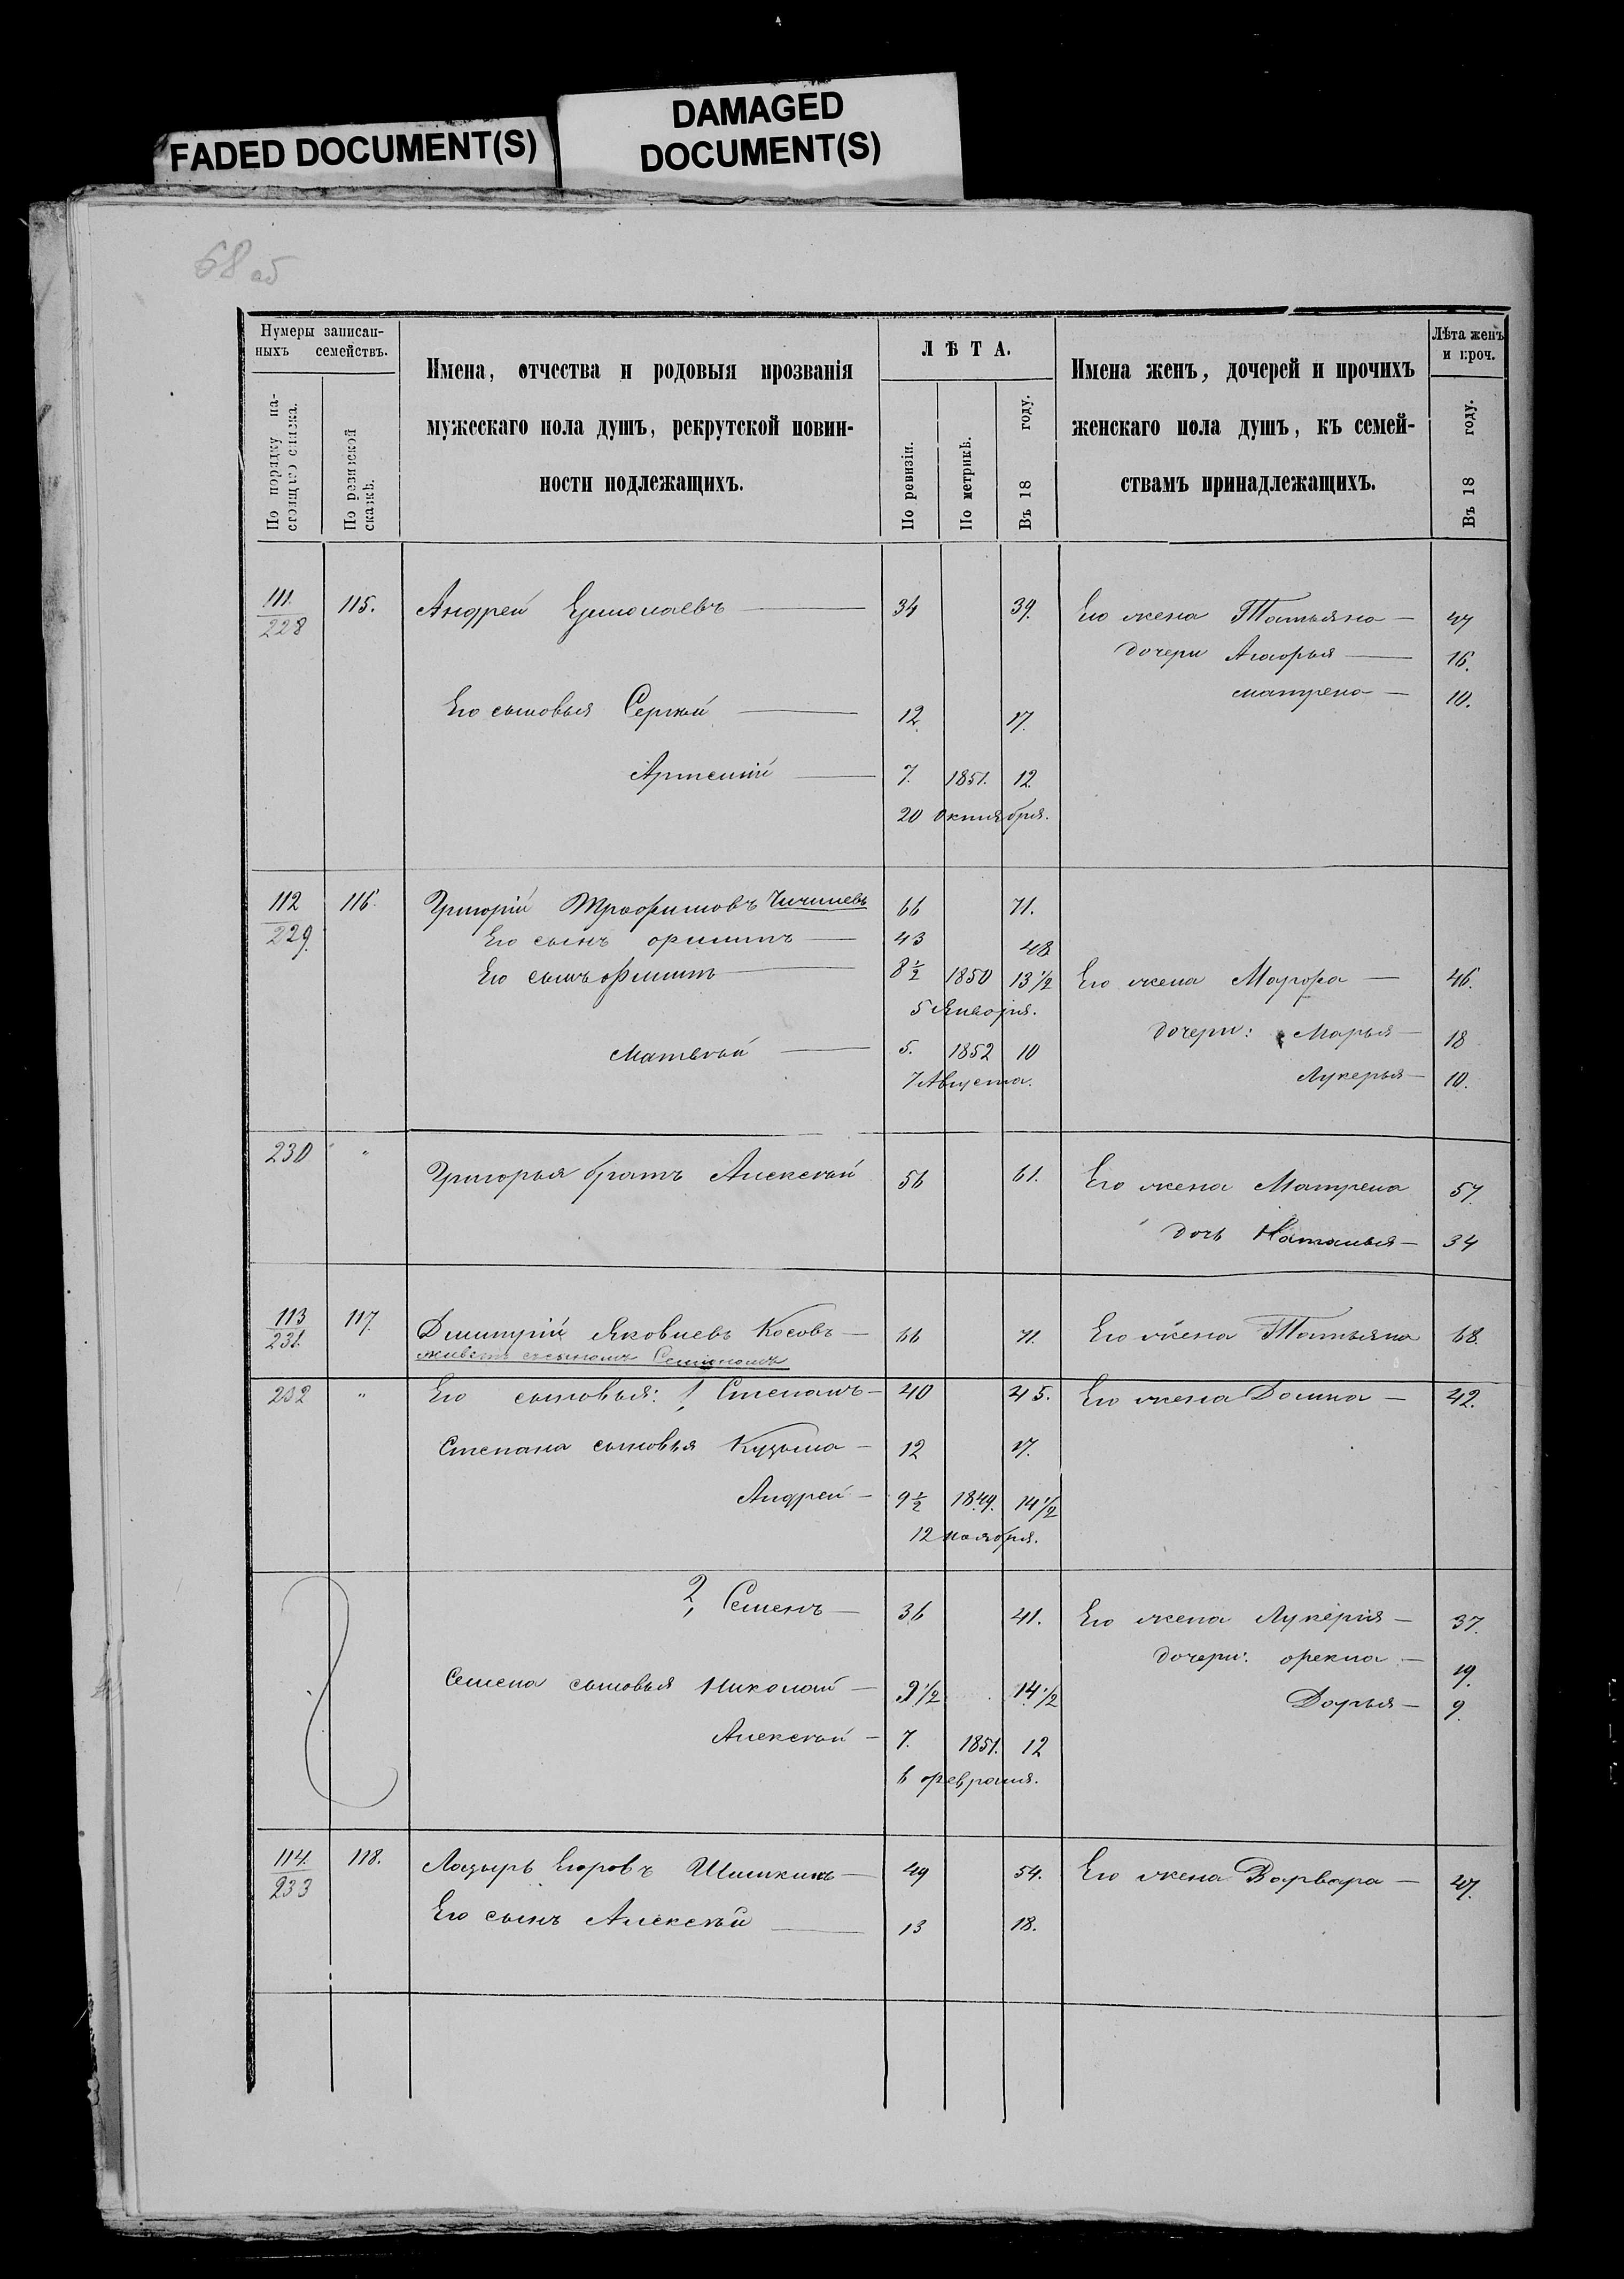 FADED DOCUMENT(S)
DAMAGED
DOCUMENT(S)
68 об
Нумеры записан-
ныхъ семействъ.
По порядку на-
стоящаго списка.
По ревизской
сказкѣ.
Имена, отчества и родовыя прозванія
мужескаго пола душъ, рекрутской повин-
ности подлежащихъ.
ЛѢТА.
По ревизіи.
По метрикѣ.
Въ 18 году.
Имена женъ, дочерей и прочихъ
женскаго пола душъ, къ семей-
ствамъ принадлежащихъ.
Лѣта женъ
и проч.
Въ 18 году.
111. 115. Андрей Ермолаевъ — 34 39. Его жена Татьяна — 47
228
дочери Агафья — 16.
Матрена — 10.
Его сыновья Сергѣй — 12. 17.
Артемій — 7. 1851. 12.
20 Октября.
112 116. Григорій Трофимовъ Чичилевъ 66 71.
229.
Его сынъ Филипъ — 43 48
Его сынъ Филипъ — 8½ 1850 13½ Его жена Марфа — 46.
5 Января.
дочери: Марья — 18
Матвѣй — 5. 1852 10
Лукерья — 10.
7 Августа.
230 " Григорья братъ Алексѣй 56 61. Его жена Матрена 57.
дочь Наталья — 34
113 117. Дмитрій Яковлевъ Косовъ — 66 71. Его жена Татьяна 68.
231.
живетъ съ сыномъ Семеномъ
232 " Его сыновья: 1, Степанъ — 40 45. Его жена Домна — 42.
Степана сыновья Кузьма — 12 17.
Андрей — 9½ 1849. 14½
12 ноября.
2, Семенъ — 36 41. Его жена Лукерія — 37.
дочери: Фекла — 19.
Семена сыновья Николай — 9½ 14½
Дарья — 9.
Алексѣй — 7. 1851. 12
6 февраля.
114. 118. Лазырь Егоровъ Шишкинъ — 49 54. Его жена Варвара — 47.
233
Его сынъ Алексѣй — 13 18.